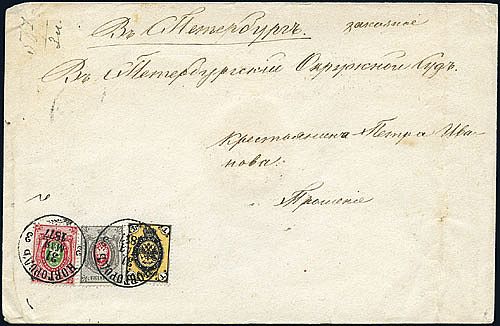 Въ Петербургъ.
заказное
Въ Петербургскiй Окружной Судъ.
Крестьянина Петра Ива-
нова:
Прошенiе
1877